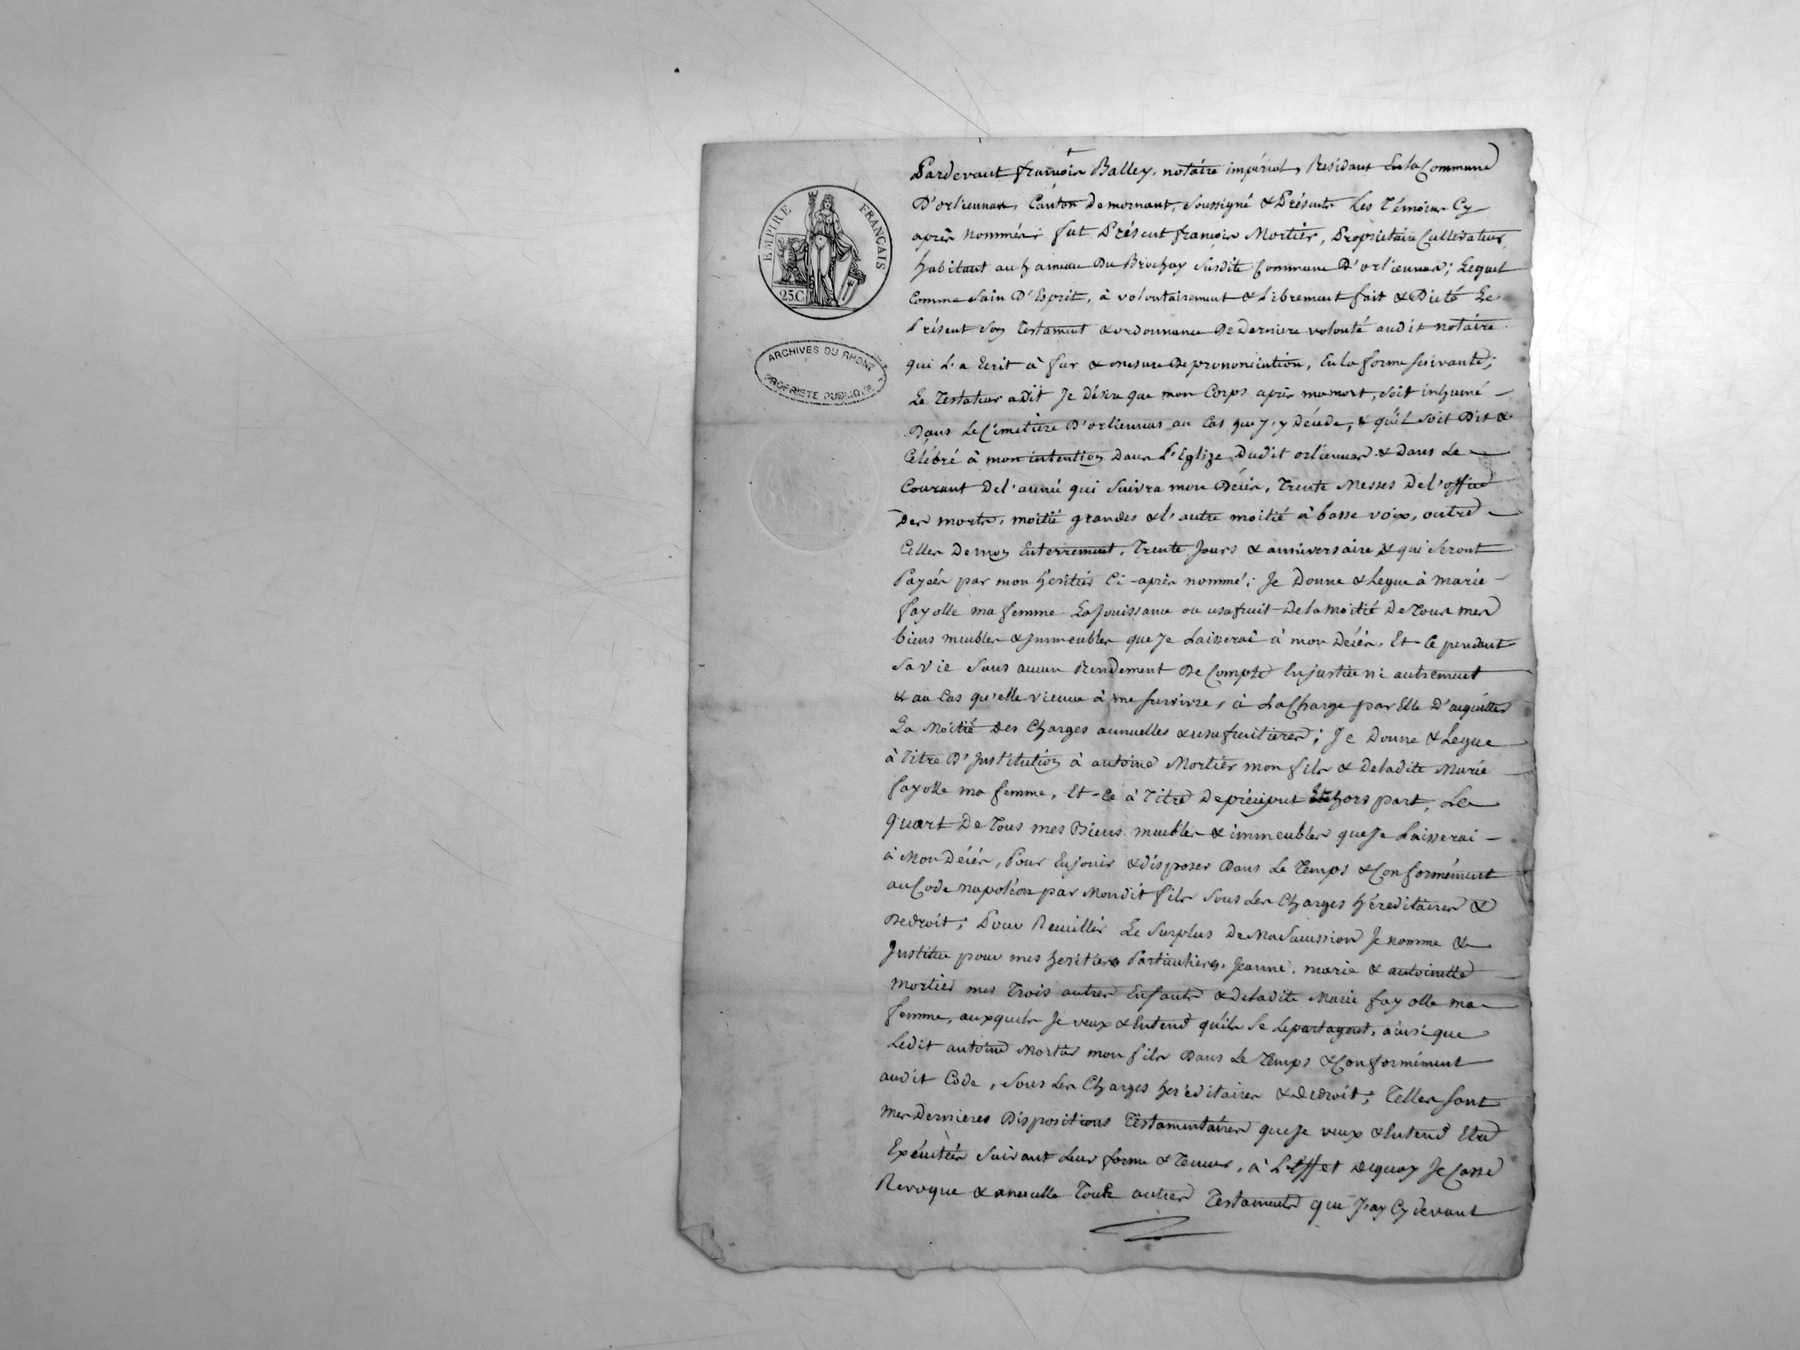 EMPIRE FRANÇAIS
25C
ARCHIVES DU RHONE
PROPRIETE PUBLIQUE
Pardevant françois Balley, notaire impérial, Résidant En la Commune
D'orliennas, Canton de mornant, soussigné & Présents Les Témoins Cy
après Nommés; fut Présent françois Mortier, Propriétaire Cultivateur
habitant au hameau Du Brochay susdite Commune D'orliennas; Lequel
Comme Sain D'Esprit, à volontairement & Librement fait & Dicté Le
Présent Son Testament & ordonnance De Derniere volonté audit notaire
qui L'a Ecrit à fur & mesure De prononciation, En la forme suivante;
Le Testateur a dit Je Désire que mon Corps après ma mort, soit inhumé
Dans Le Cimetière D'orliennas au Cas que J'y Décede, & qu'il soit Dit &
Célébré à mon intention Dans L'Eglize Dudit orliennas & Dans Le
Courant De l'année qui Suivra mon Décès, Trente Messes De l'office
Des morts, moitié grandes & l'autre moitié à basse voix, outre
Celles De mon Enterrement, Trente Jours & anniversaire & qui Seront
Payées par mon héritier Ci-après nommé; Je Donne & Legue à marie
fayolle ma femme La Jouissance ou usufruit De la Moitié De Tous mes
biens meubles & Immeubles que Je Laisserai à mon Décès. Et Ce pendant
Sa vie Sans aucun Rendement De Compte En justice ni autrement
& au Cas qu'elle vienne à me survivre, à La Charge par Elle D'acquitter
La Moitié Des Charges annuelles & usufruitieres; Je Donne & Legue
à Titre D'Institution à antoine Mortier mon fils & de ladite Marie
fayolle ma femme, Et-Ce à Titre De préciput Et hors part, Le
quart De Tous mes Biens meubles & immeubles que Je Laisserai
à Mon Décès, Pour En jouir & disposer Dans Le Temps & Conformément
au Code napoléon par Mondit fils Sous Les Charges héréditaires &
De droit; Pour Receuillir Le Surplus De Ma Succession Je nomme &
Institue pour mes heritiers Particuliers, Jeanne, marie & antoinette
Mortier mes Trois autres Enfants & De ladite Marie fayolle ma
femme, auxquels Je veux & Entend qu'ils Se Le partagent, ainsi que
Ledit antoine Mortier mon fils Dans Le Temps & Conformément
audit Code, Sous Les Charges héréditaires & De droit; Telles sont
Mes Dernieres Dispositions Testamentaires que Je veux & Entend Etre
Exécutées Suivant Leur forme & Teneur, à L'Effet De quoy Je Casse
Revoque & annulle Tous autres Testaments que J'ay Cy devant